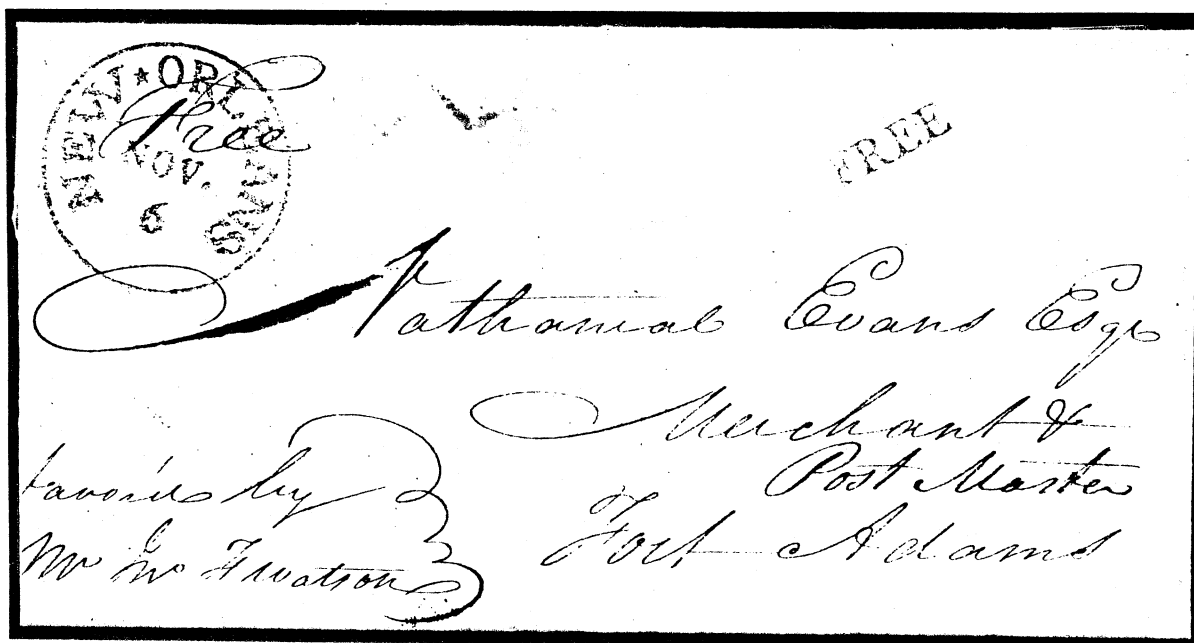 NEW ★ ORLEANS
NOV.
6
Free
FREE
Nathanial Evans Esqr
Merchant &
Post Master
Fort Adams
favord by
Mr Jno F Watson